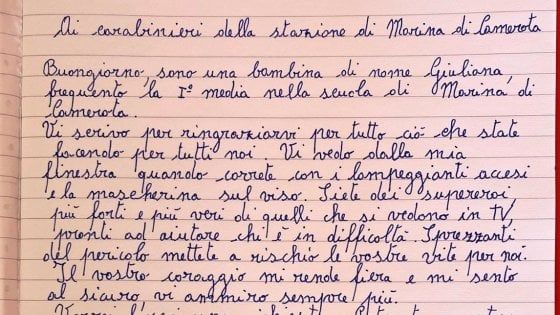 Ai carabinieri della stazione di Marina di Camerota
Buongiorno, sono una bambina di nome Giuliana,
frequento la I° media nella scuola di Marina di
Camerota.
Vi scrivo per ringraziarvi per tutto ciò che state
facendo per tutti noi. Vi vedo dalla mia
finestra quando correte con i lampeggianti accesi
e la mascherina sul viso. Siete dei supereroi,
più forti e più veri di quelli che si vedono in TV,
pronti ad aiutare chi è in difficoltà. Sprezzanti
del pericolo mettete a rischio le vostre vite per noi.
Il vostro coraggio mi rende fiera e mi sento
al sicuro, vi ammiro sempre più.